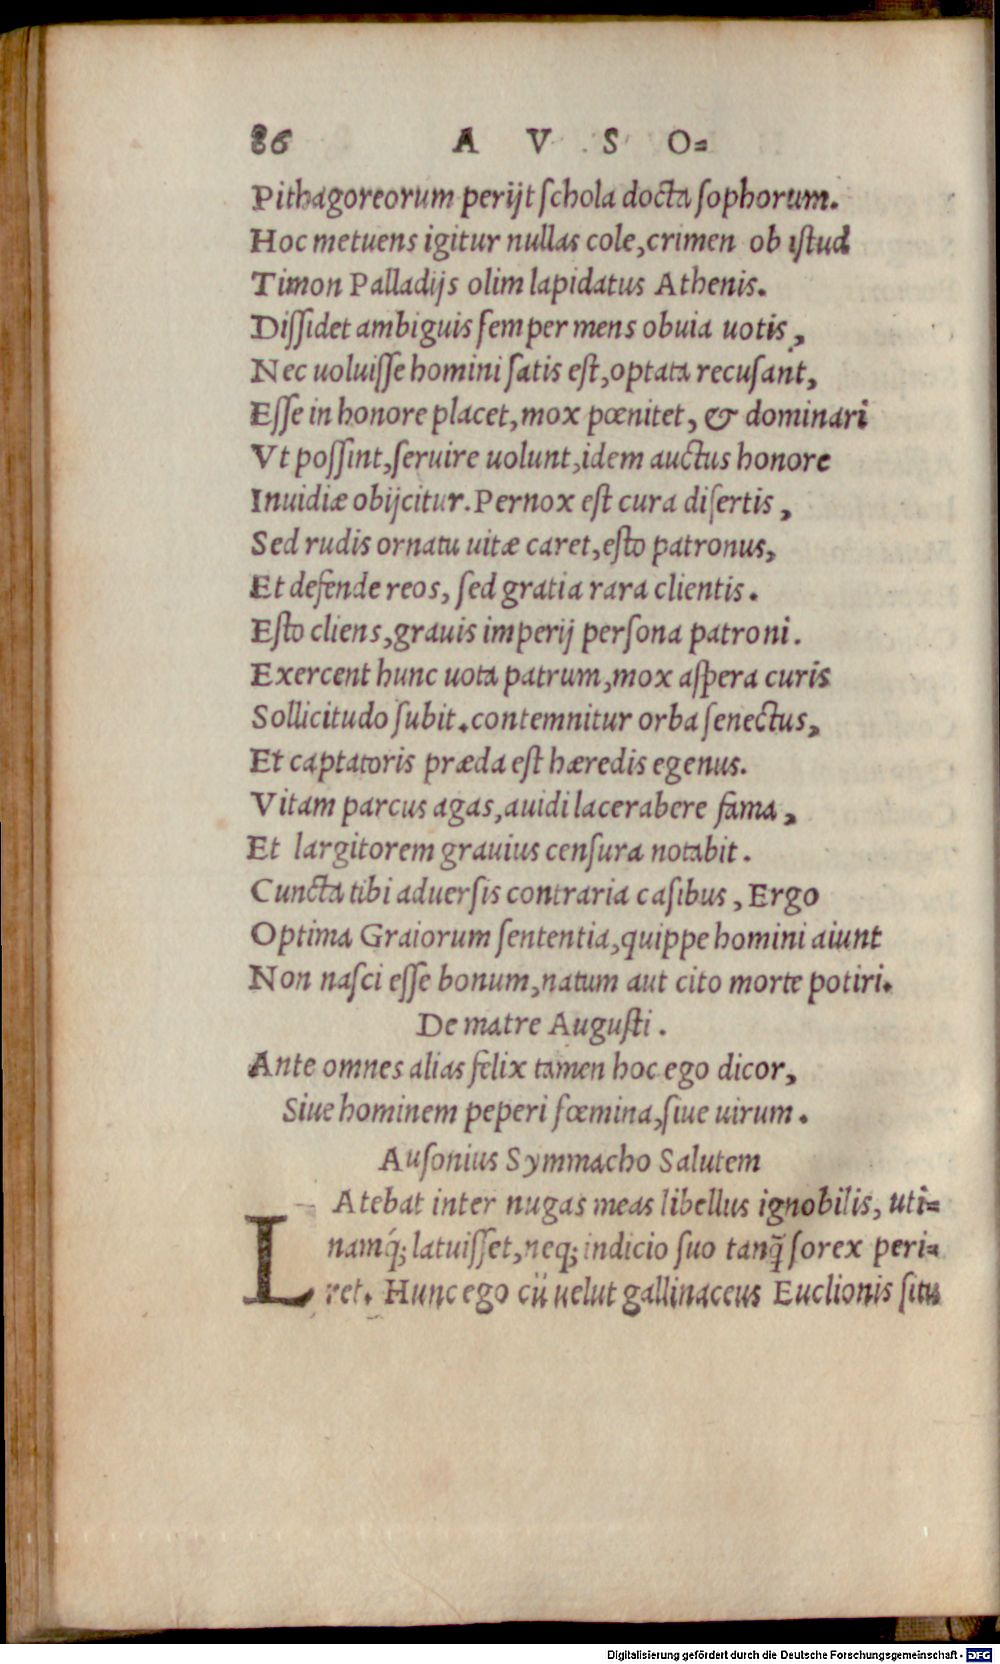 86 A V S O=
Pithagoreorum perijt ſchola docta ſophorum.
Hoc metuens igitur nullas cole, crimen ob iſtud
Timon Palladijs olim lapidatus Athenis.
Diſſidet ambiguis ſemper mens obuia uotis,
Nec uoluiſſe homini ſatis eſt, optata recuſant,
Eſſe in honore placet, mox pœnitet, & dominari
Vt poſſint, ſeruire uolunt, idem auctus honore
Inuidiæ obijcitur. Pernox eſt cura diſertis,
Sed rudis ornatu uitæ caret, eſto patronus,
Et defende reos, ſed gratia rara clientis.
Eſto cliens, grauis imperij perſona patroni.
Exercent hunc uota patrum, mox aſpera curis
Sollicitudo ſubit. contemnitur orba ſenectus,
Et captatoris præda eſt hæredis egenus.
Vitam parcus agas, auidi lacerabere fama,
Et largitorem grauius cenſura notabit.
Cuncta tibi aduerſis contraria caſibus, Ergo
Optima Graiorum ſententia, quippe homini aiunt
Non naſci eſſe bonum, natum aut cito morte potiri.
De matre Auguſti.
Ante omnes alias felix tamen hoc ego dicor,
Siue hominem peperi fœmina, ſiue uirum.
Auſonius Symmacho Salutem
LAtebat inter nugas meas libellus ignobilis, uti=
namq́; latuiſſet, neq; indicio ſuo tanq̃ ſorex peri=
ret. Hunc ego cũ uelut gallinaceus Euclionis ſitu
Digitalisierung gefördert durch die Deutsche Forschungsgemeinschaft - DFG